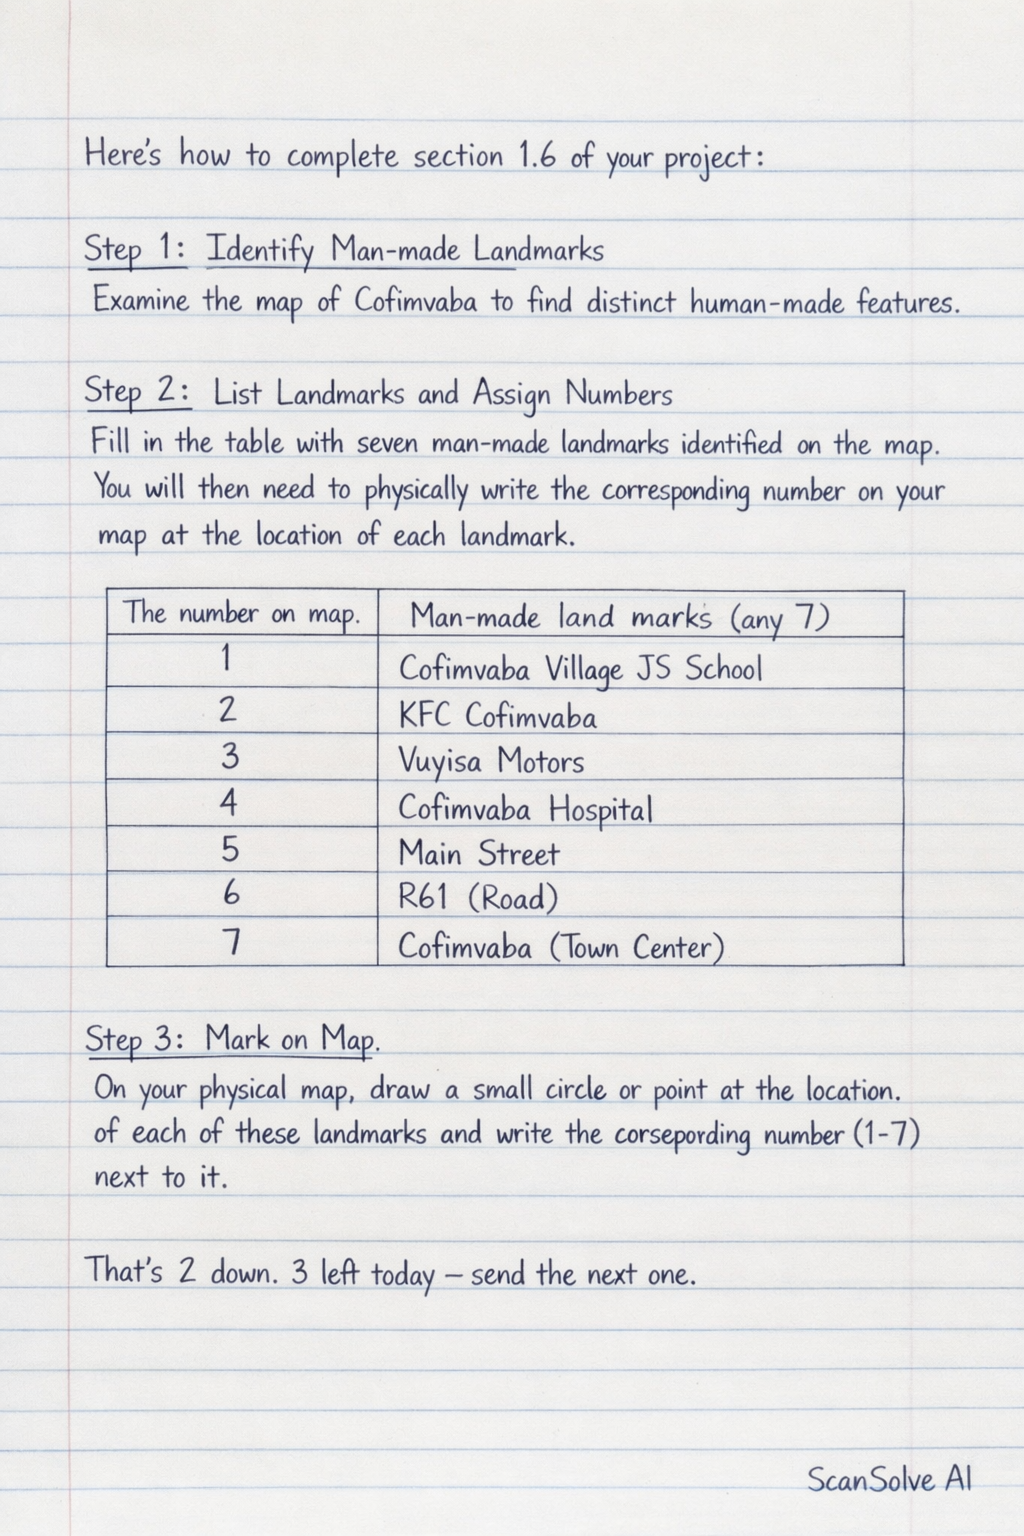 Here's how to complete section 1.6 of your project:
Step 1: Identify Man-made Landmarks
Examine the map of Cofimvaba to find distinct human-made features.
Step 2: List Landmarks and Assign Numbers
Fill in the table with seven man-made landmarks identified on the map.
You will then need to physically write the corresponding number on your
map at the location of each landmark.
The number on map. Man-made land marks (any 7)
1 Cofimvaba Village JS School
2 KFC Cofimvaba
3 Vuyisa Motors
4 Cofimvaba Hospital
5 Main Street
6 R61 (Road)
7 Cofimvaba (Town Center)
Step 3: Mark on Map.
On your physical map, draw a small circle or point at the location.
of each of these landmarks and write the corsepording number (1-7)
next to it.
That's 2 down. 3 left today – send the next one.
ScanSolve AI